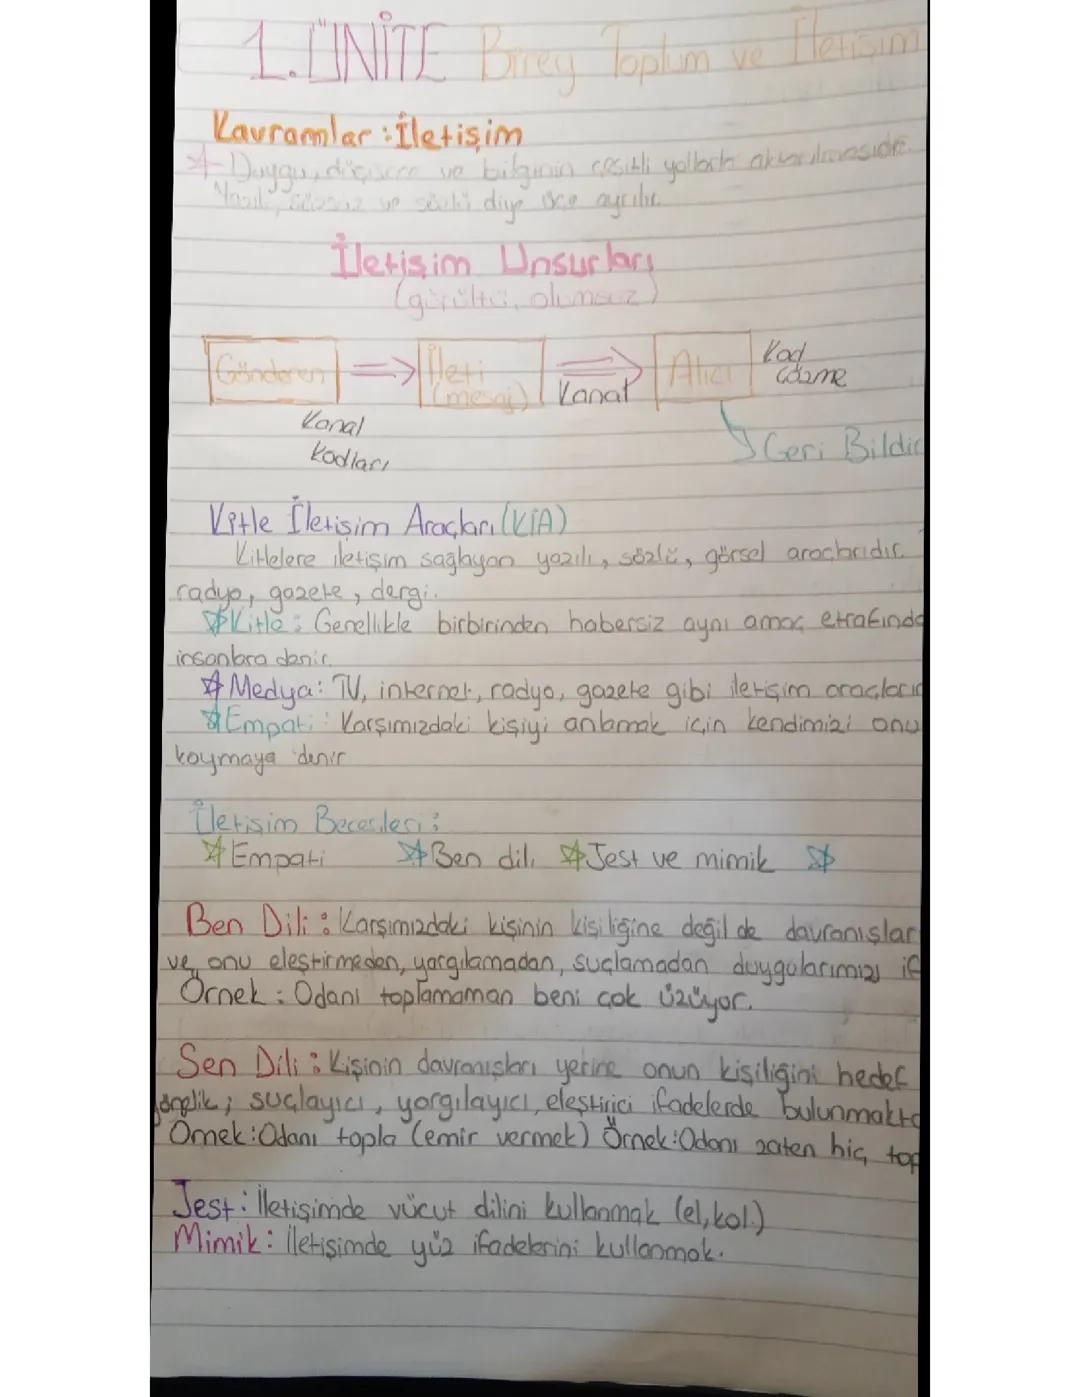 1.ÜNİTE Birey Toplum ve İletişim
Kavramlar : İletişim
Duygu, düşünce ve bilginin çeşitli yollarla aktarılmasıdır.
Yazılı, sözsüz ve sözlü diye üçe ayrılır.
İletişim Unsurları
(gürültü, olumsuz)
Gönderen ⇒ İleti (mesaj) ⇒ Kanal Alıcı Kod Çözme
Kanal
Kodları
Geri Bildir
Kitle İletişim Araçları (KİA)
Kitlelere iletişim sağlayan yazılı, sözlü, görsel araçlarıdır.
radyo, gazete, dergi.
Kitle : Genellikle birbirinden habersiz aynı amaç etrafında
insanlara denir.
Medya: TV, internet, radyo, gazete gibi iletişim araçlarıd
Empati : Karşımızdaki kişiyi anlamak için kendimizi onu
koymaya denir
İletişim Becerileri :
Empati Ben dili Jest ve mimik
Ben Dili : Karşımızdaki kişinin kişiliğine değil de davranışlar
ve onu eleştirmeden, yargılamadan, suçlamadan duygularımızı if
Örnek : Odanı toplamaman beni çok üzüyor.
Sen Dili : Kişinin davranışları yerine onun kişiliğini hedef
yönelik ; suçlayıcı, yorgılayıcı, eleştirici ifadelerde bulunmakta
Örnek : Odanı topla (emir vermek) Örnek : Odanı zaten hiç top
Jest : İletişimde vücut dilini kullanmak (el, kol.)
Mimik : İletişimde yüz ifadelerini kullanmak.